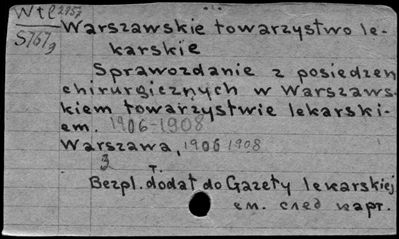 Wtl 2757
S767g
Warszawskie towarzystwo le-
karskie
Sprawozdanie z posiedzen
chirurgicznych w Warszaws-
kiem towarzystwie lekarski-
em. 1906-1908
Warszawa, 1906 1908
3 т.
Bezpl. dodat do Gazety lekarskiej
см. след карт.